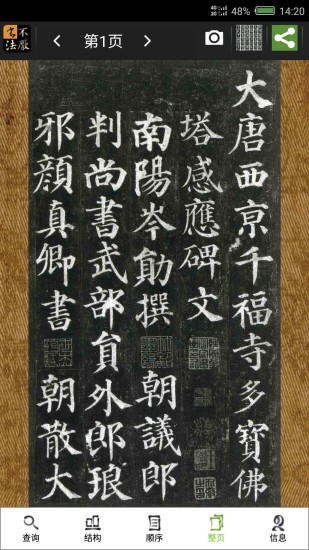 48% 14:20
第1页
大唐西京千福寺多寶佛
塔感應碑文
南陽岑勛撰 朝議郎
判尚書武部員外郎琅
邪顏真卿書 朝散大
查询 结构 顺序 整页 信息